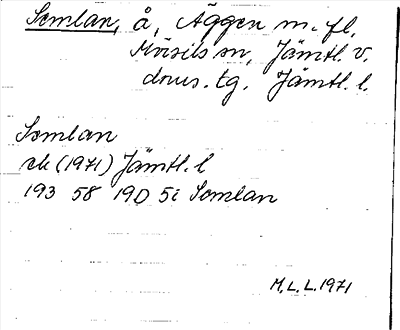 Somlan, å, Äggen m. fl.
Mörsils sn, Jämtl. v.
doms. tg. Jämtl. l.
Somlan
ek (1971) Jämtl. l
193 58 19D 5i Somlan
M.L.L. 1971